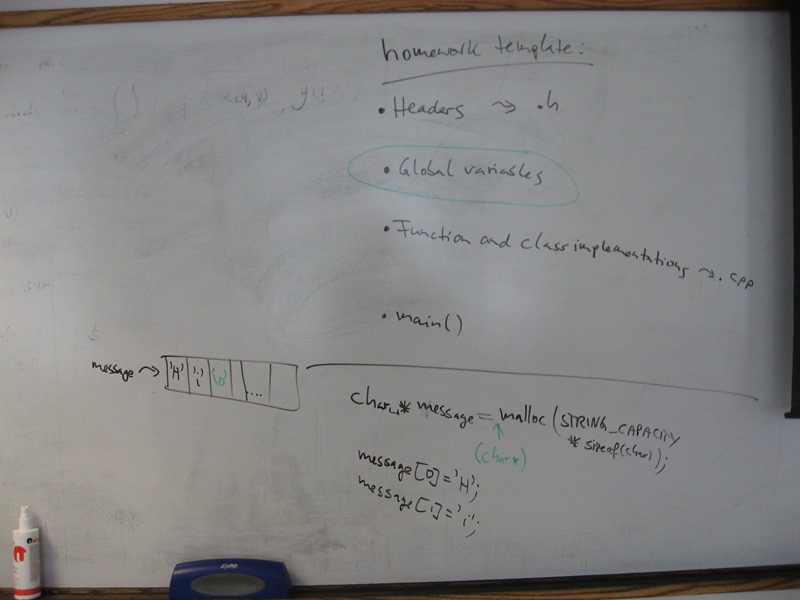 homework template:
• Headers → .h
• Global variables
• Function and class implementations → .cpp
• main()
message → 'H' 'i' '\0' ...
char * message = malloc (STRING_CAPACITY
* sizeof(char));
(char*)
message[0]='H';
message[1]='i';
EXPO